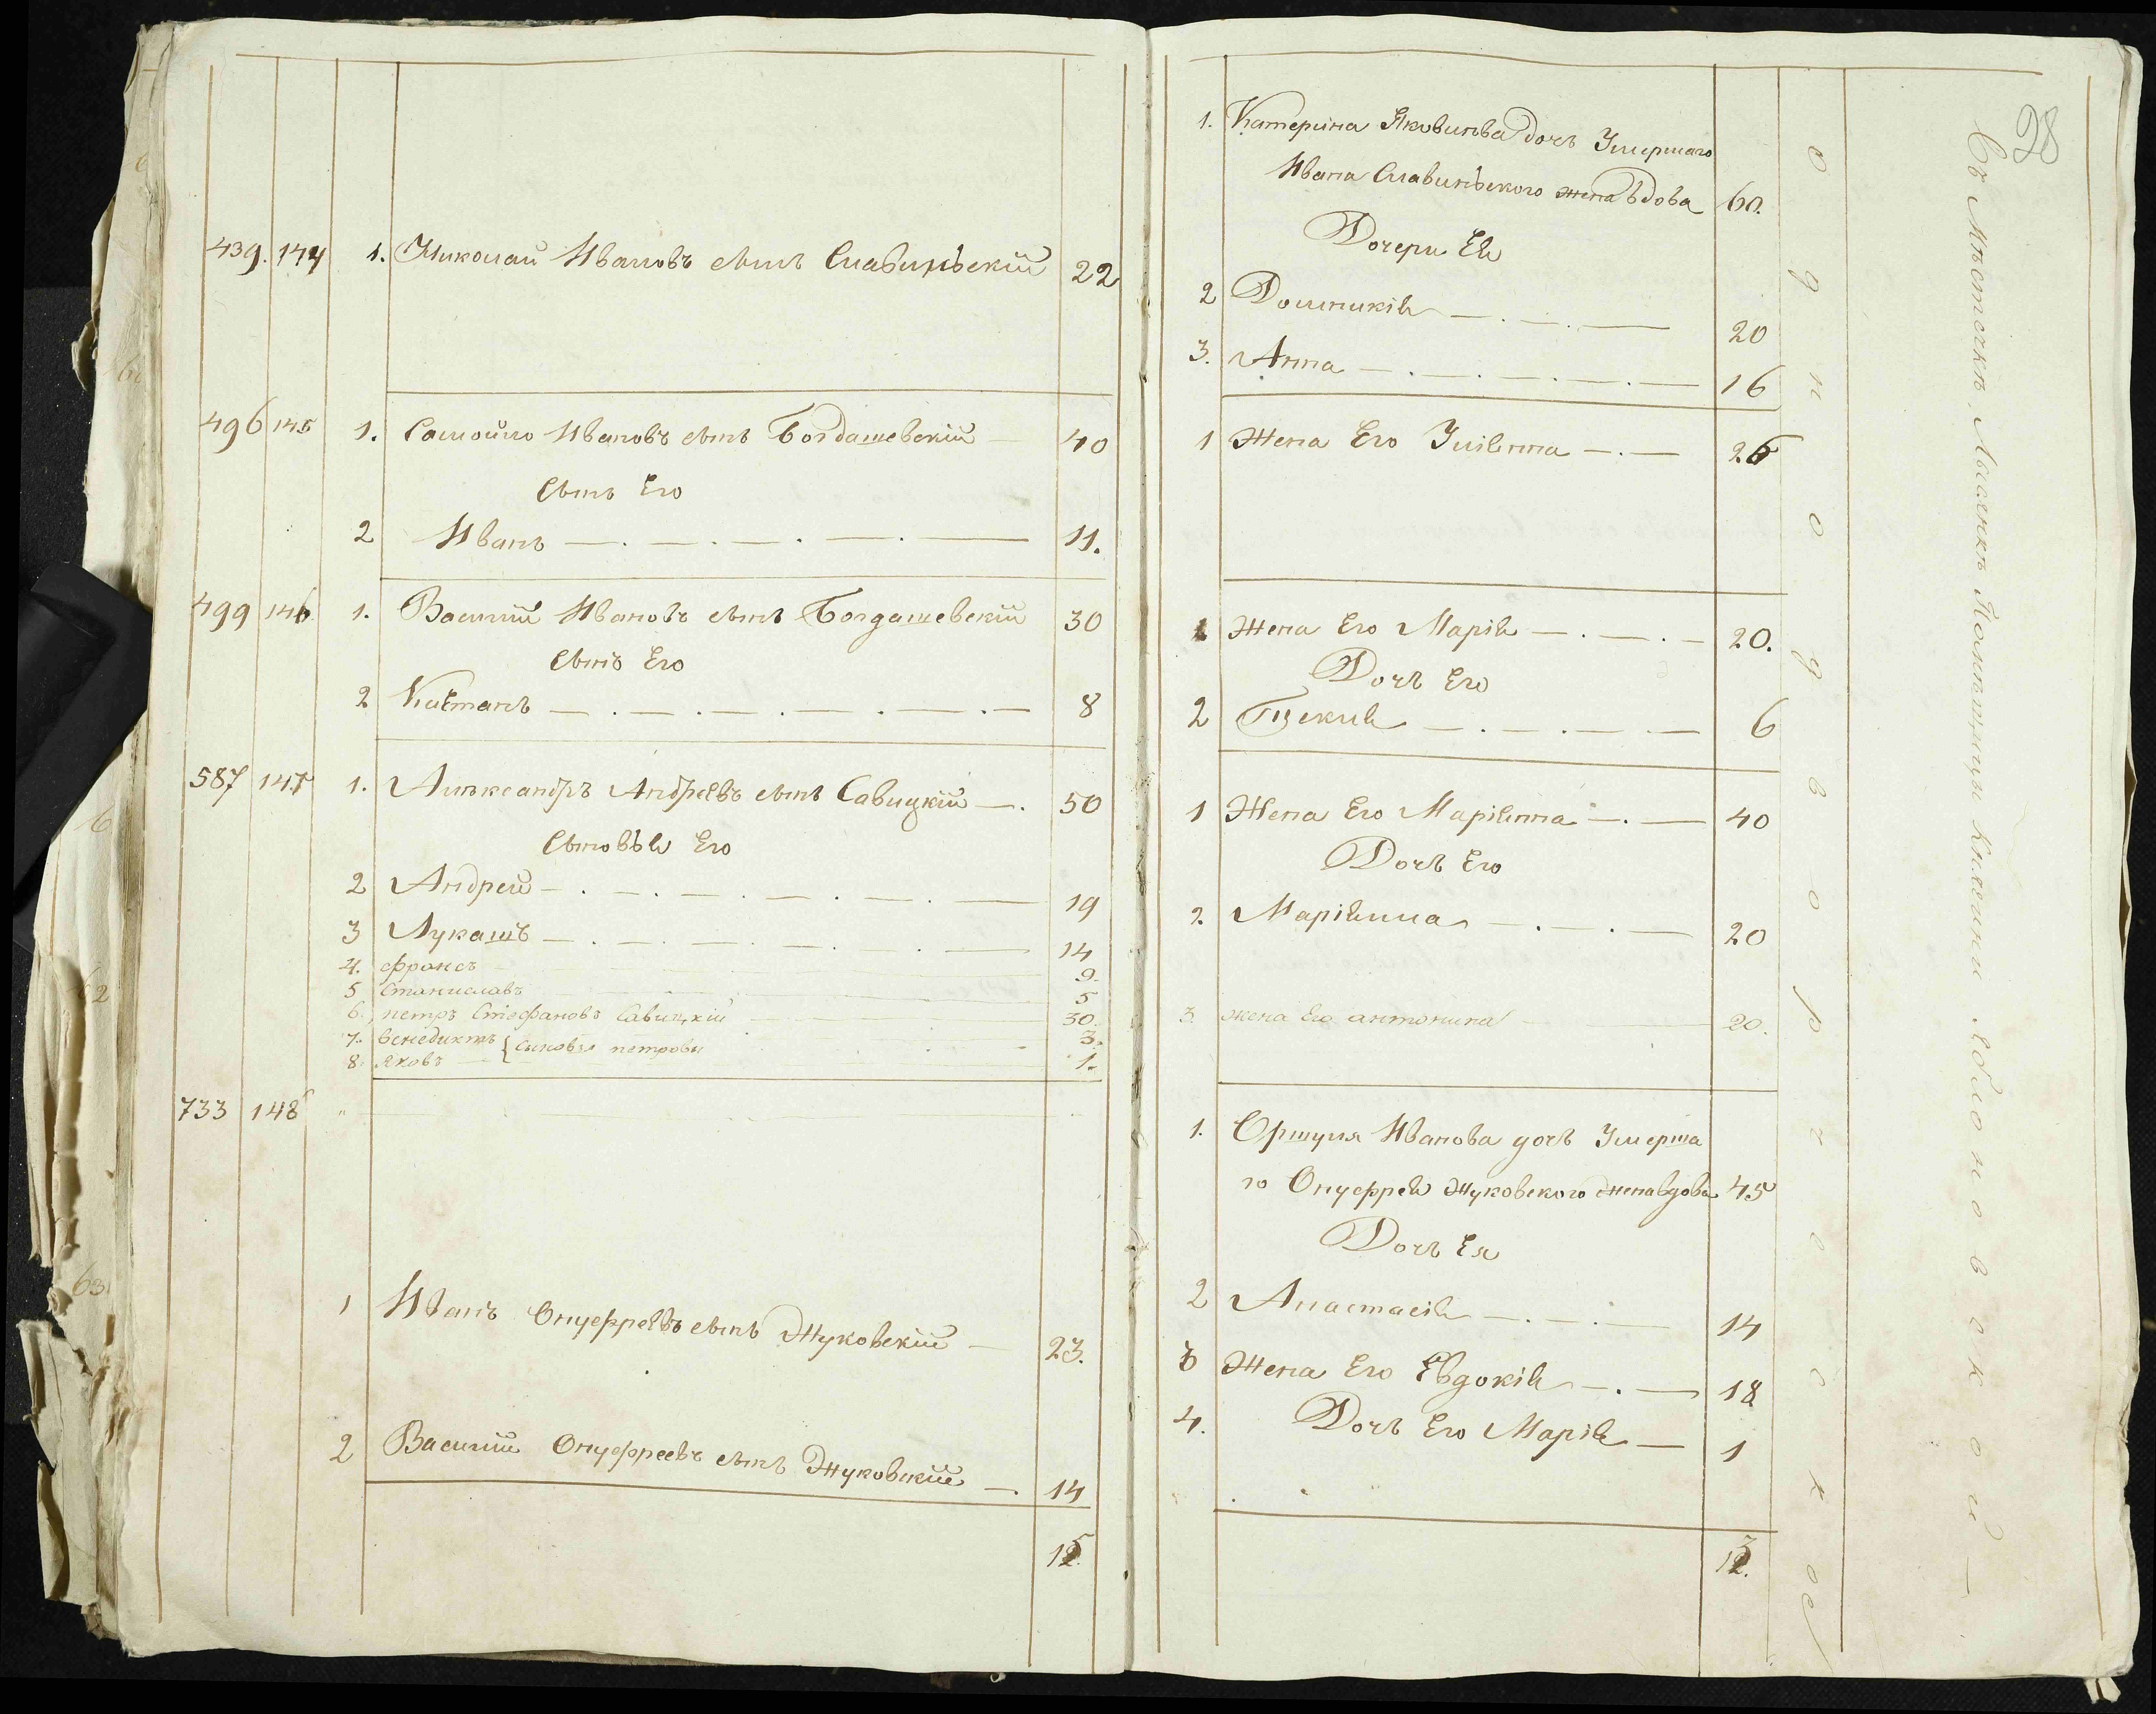 439. 144 1. Николай Ивановъ сынъ Славинъский 22
496 145 1. Самойло Ивановъ сынъ Богдашевский — 40
Сынъ Его
2 Иванъ — . — . — . — . — 11.
499 146 1. Василий Ивановъ сынъ Богдашевский 30
Сынъ Его
2 Каетанъ — . — . — . — . — . — 8
587 147 1. Александръ Андреевъ сынъ Савицкий — . 50
Сыновья Его
2 Андрей — . — . — . — . — . — 19
3 Лукашъ — . — . — . — . — . — 14
4. францъ 9.
5 Станиславъ 5
6. петръ Стефановъ Савицкий 30.
7. венедиктъ { сыновья петровы 3.
8. яковъ — 1.
733 148 "
1 Иванъ Онуфреевъ сынъ Жуковский — 23.
2 Василий Онуфреевъ сынъ Жуковский — . 14
15.
28
1. Катерина Яковлева дочь Умершаго
Ивана Славинъского жена вдова 60.
Дочери Ея
2 Доминикия — . — . — 20
3. Анна — . — . — . — . — 16
1 Жена Его Улияна — . — 26
1 Жена Его Мария — . — . — 20.
Дочь Его
2 Текля — . — . — . — 6
1 Жена Его Марияна — . — 40
Дочь Его
2. Марияна — . — . — 20
3. жена Его антонина 20.
1. Оршуля Иванова дочь Умерша
го Онуфрея Жуковского жена вдова 45
Дочь Ея
2 Анастасия — . — . — 14
3 Жена Его Евдокия — . — 18
4. Дочь Его Мария — 1
13.
однодворческое
Въ Мѣстечкѣ Лысянкѣ Помѣщицы Княгини Яблоновской —